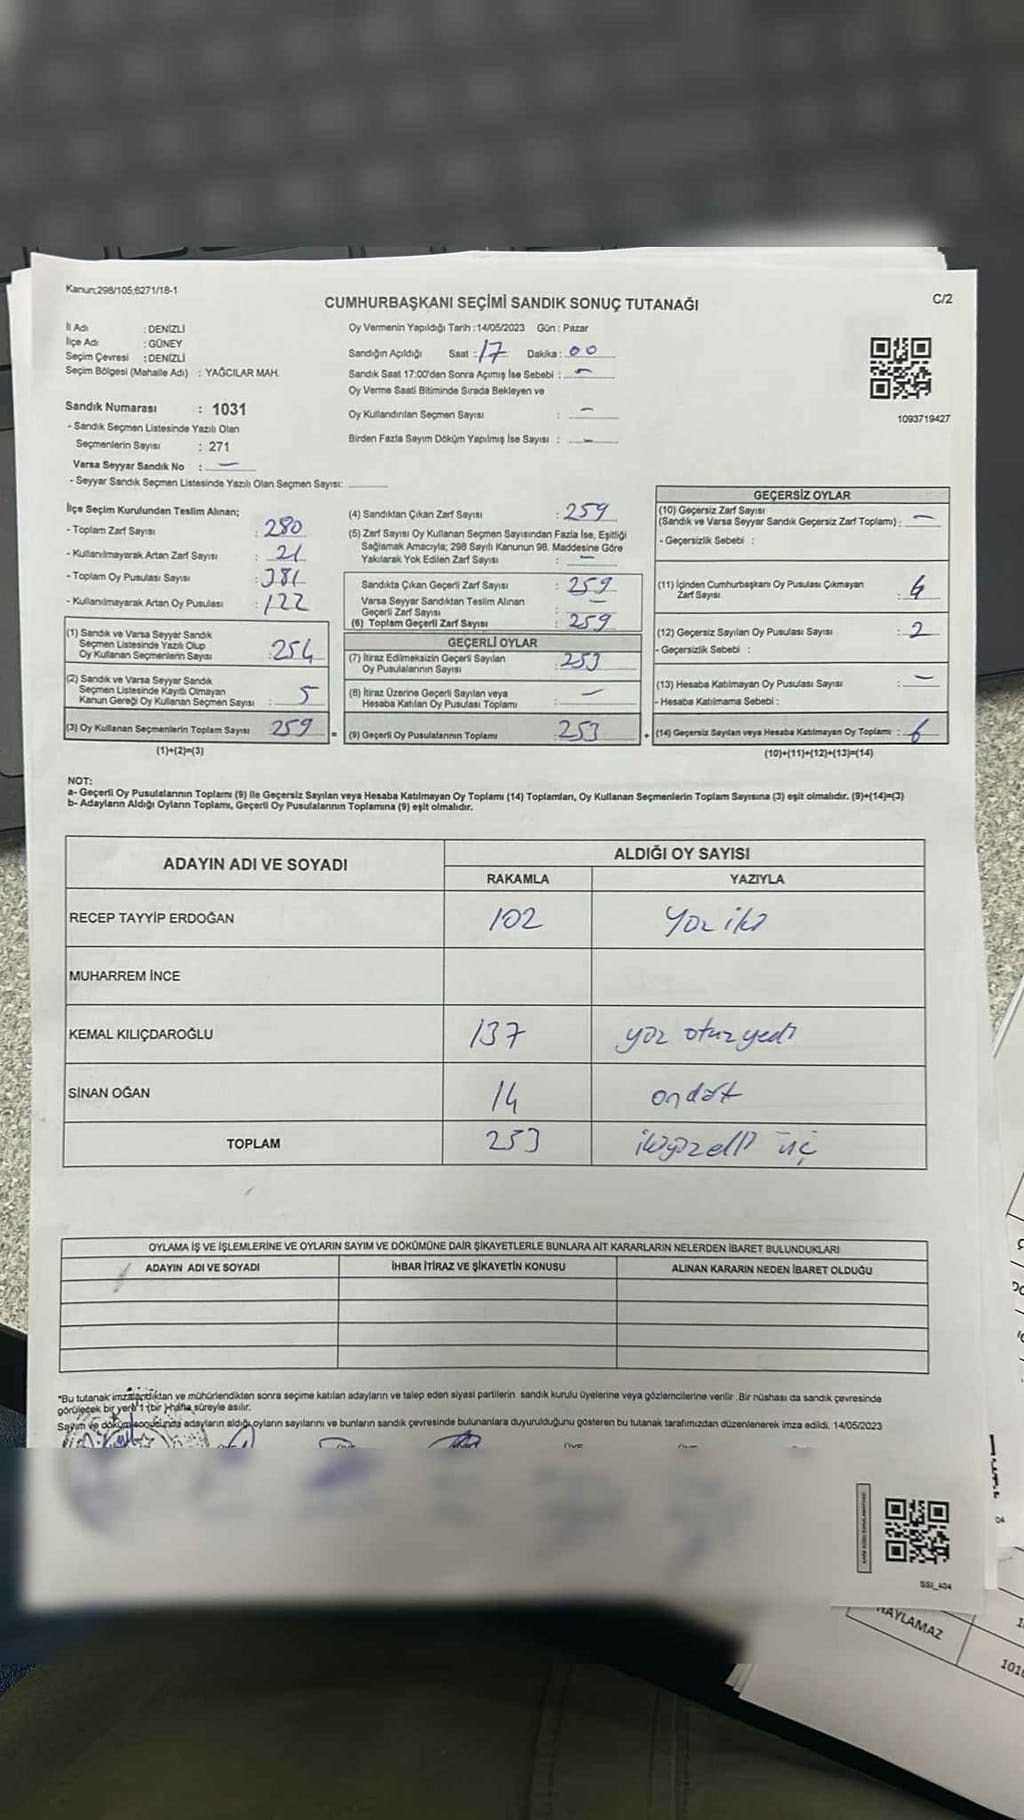 Kanun;298/105,6271/18-1
CUMHURBAŞKANI SEÇİMİ SANDIK SONUÇ TUTANAĞI
C/2
İl Adı : DENİZLİ
İlçe Adı : GÜNEY
Seçim Çevresi : DENİZLİ
Seçim Bölgesi (Mahalle Adı) : YAĞCILAR MAH.
Sandık Numarası : 1031
- Sandık Seçmen Listesinde Yazılı Olan
Seçmenlerin Sayısı : 271
Varsa Seyyar Sandık No : —
- Seyyar Sandık Seçmen Listesinde Yazılı Olan Seçmen Sayısı:
Oy Vermenin Yapıldığı Tarih :14/05/2023 Gün : Pazar
Sandığın Açıldığı Saat : 17 Dakika : 00
Sandık Saat 17:00'den Sonra Açımış İse Sebebi : —
Oy Verme Saati Bitiminde Sırada Bekleyen ve
Oy Kullandırılan Seçmen Sayısı : —
Birden Fazla Sayım Döküm Yapılmış İse Sayısı : —
1093719427
İlçe Seçim Kurulundan Teslim Alınan;
- Toplam Zarf Sayısı : 280
- Kullanılmayarak Artan Zarf Sayısı : 21
- Toplam Oy Pusulası Sayısı : 381
- Kullanılmayarak Artan Oy Pusulası : 122
(1) Sandık ve Varsa Seyyar Sandık
Seçmen Listesinde Yazılı Olup
Oy Kullanan Seçmenlerin Sayısı : 254
(2) Sandık ve Varsa Seyyar Sandık
Seçmen Listesinde Kayıtlı Olmayan
Kanun Gereği Oy Kullanan Seçmen Sayısı : 5
(3) Oy Kullanan Seçmenlerin Toplam Sayısı 259
(1)+(2)=(3)
(4) Sandıktan Çıkan Zarf Sayısı : 259
(5) Zarf Sayısı Oy Kullanan Seçmen Sayısından Fazla İse, Eşitliği
Sağlamak Amacıyla; 298 Sayılı Kanunun 98. Maddesine Göre
Yakılarak Yok Edilen Zarf Sayısı : —
Sandıkta Çıkan Geçerli Zarf Sayısı : 259
Varsa Seyyar Sandıktan Teslim Alınan
Geçerli Zarf Sayısı : —
(6) Toplam Geçerli Zarf Sayısı : 259
GEÇERLİ OYLAR
(7) İtiraz Edilmeksizin Geçerli Sayılan
Oy Pusulalarının Sayısı : 253
(8) İtiraz Üzerine Geçerli Sayılan veya
Hesaba Katılan Oy Pusulası Toplamı : —
= (9) Geçerli Oy Pusulalarının Toplamı : 253
GEÇERSİZ OYLAR
(10) Geçersiz Zarf Sayısı
(Sandık ve Varsa Seyyar Sandık Geçersiz Zarf Toplamı) : —
- Geçersizlik Sebebi :
(11) İçinden Cumhurbaşkanı Oy Pusulası Çıkmayan
Zarf Sayısı : 4
(12) Geçersiz Sayılan Oy Pusulası Sayısı : 2
- Geçersizlik Sebebi :
(13) Hesaba Katılmayan Oy Pusulası Sayısı : —
- Hesaba Katılmama Sebebi :
+ (14) Geçersiz Sayılan veya Hesaba Katılmayan Oy Toplamı : 6
(10)+(11)+(12)+(13)=(14)
NOT:
a- Geçerli Oy Pusulalarının Toplamı (9) ile Geçersiz Sayılan veya Hesaba Katılmayan Oy Toplamı (14) Toplamları, Oy Kullanan Seçmenlerin Toplam Sayısına (3) eşit olmalıdır. (9)+(14)=(3)
b- Adayların Aldığı Oyların Toplamı, Geçerli Oy Pusulalarının Toplamına (9) eşit olmalıdır.
ADAYIN ADI VE SOYADI
ALDIĞI OY SAYISI
RAKAMLA YAZIYLA
RECEP TAYYİP ERDOĞAN 102 Yüz iki
MUHARREM İNCE
KEMAL KILIÇDAROĞLU 137 yüz otuz yedi
SİNAN OĞAN 14 ondört
TOPLAM 253 ikiyüzelli üç
OYLAMA İŞ VE İŞLEMLERİNE VE OYLARIN SAYIM VE DÖKÜMÜNE DAİR ŞİKAYETLERLE BUNLARA AİT KARARLARIN NELERDEN İBARET BULUNDUKLARI
ADAYIN ADI VE SOYADI İHBAR İTİRAZ VE ŞİKAYETİN KONUSU ALINAN KARARIN NEDEN İBARET OLDUĞU
*Bu tutanak imzalandıktan ve mühürlendikten sonra seçime katılan adayların ve talep eden siyasi partilerin sandık kurulu üyelerine veya gözlemcilerine verilir .Bir nüshası da sandık çevresinde
görülecek bir yere 1 (bir ) hafta süreyle asılır.
Sayım ve döküm sonucunda adayların aldığı oyların sayılarını ve bunların sandık çevresinde bulunanlara duyurulduğunu gösteren bu tutanak tarafımızdan düzenlenerek imza edildi. 14/05/2023
SSI_404
04